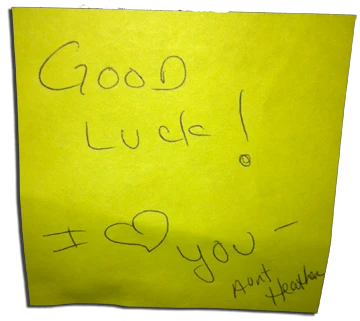 GOOD
Luck!
I ♡ you -
Aunt
Heather